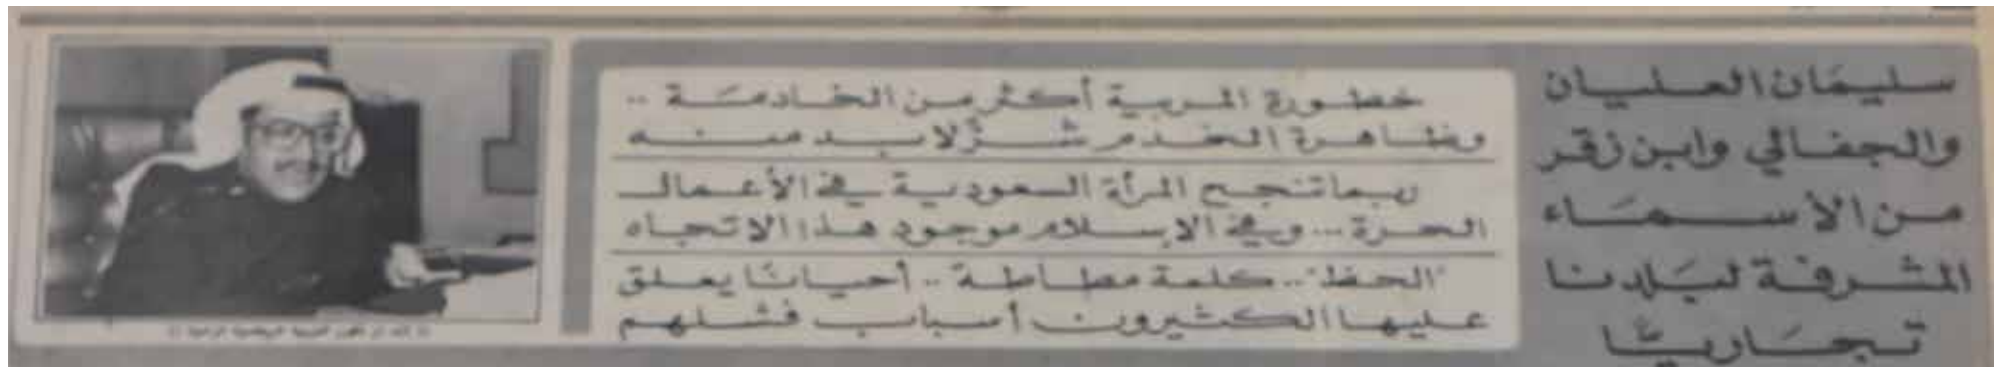 سليمان العليان
والجفالي وابن زقر
من الأسماء
المشرفة لبلدنا
تجاريًا
خطورة المربية أكثر من الخادمة ..
وظاهرة الخدم شر لا بد منه
ربما تنجح المرأة السعودية في الأعمال
الحرة ... وفي الإسلام موجود هذا الاتجاه
"الحظ" .. كلمة مطاطة .. أحيانًا يعلق
عليها الكثيرون أسباب فشلهم